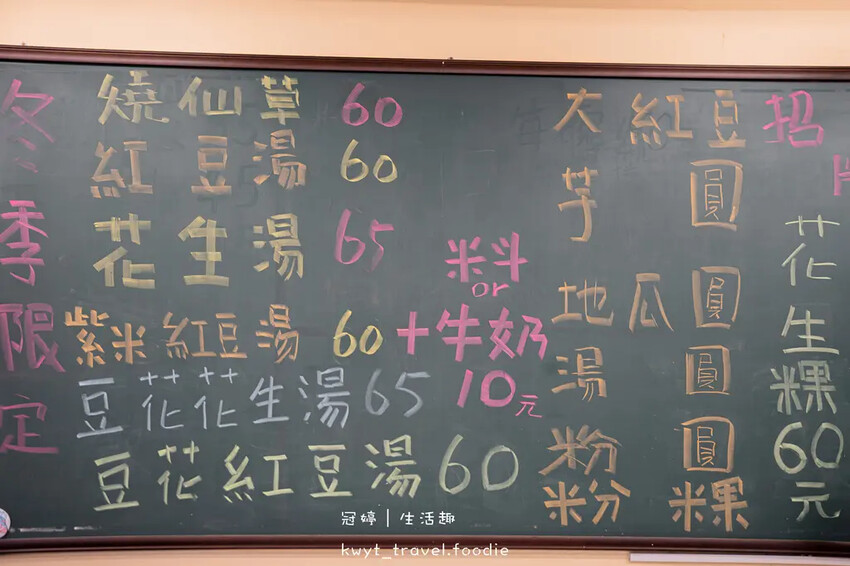 冬季限定
燒仙草 60
紅豆湯 60
花生湯 65
紫米紅豆湯 60
豆花花生湯 65
豆花紅豆湯 60
料
or
+牛奶
10元
大紅豆
芋圓
地瓜圓
湯圓
粉圓
粉粿
招
花生粿60元
冠婷｜生活趣
kwyt_travel.foodie